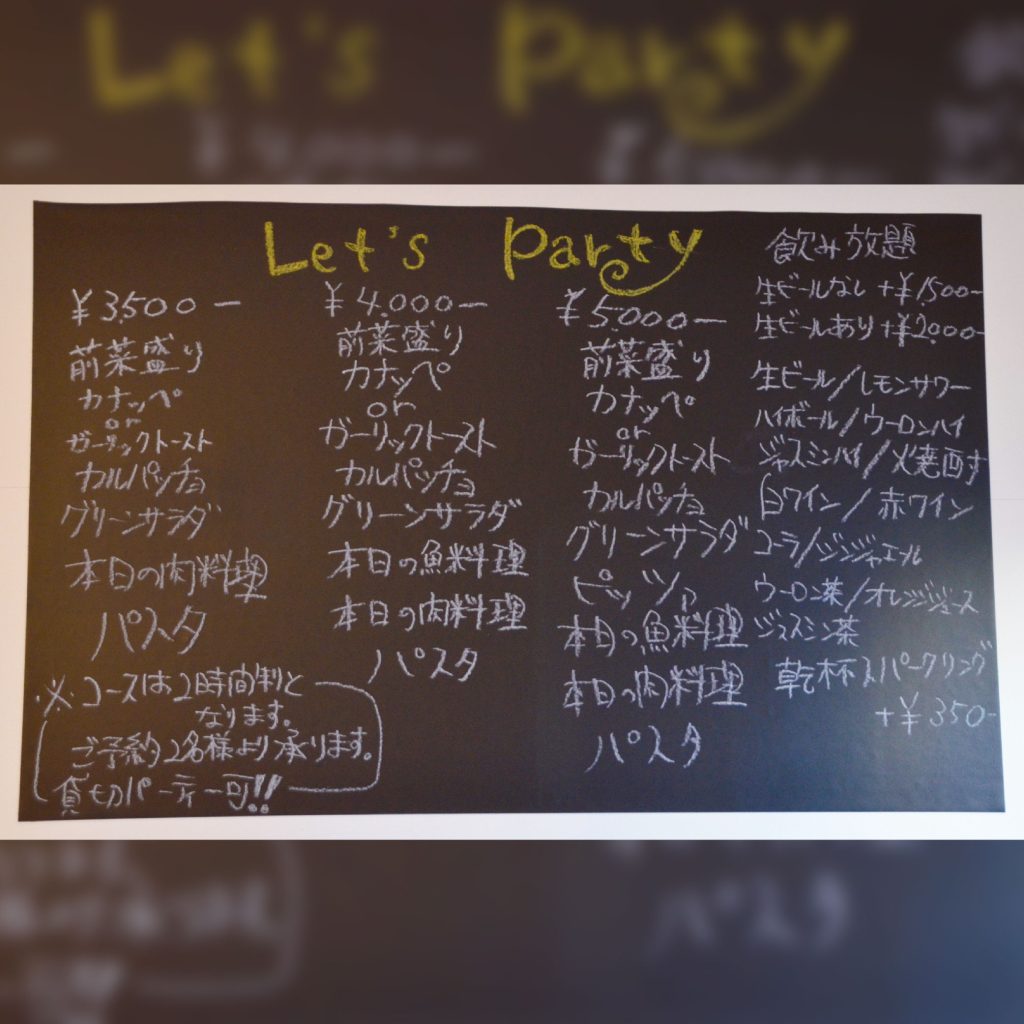 Let's Party
¥3.500ー
前菜盛り
カナッペ
or
ガーリックトースト
カルパッチョ
グリーンサラダ
本日の肉料理
パスタ
※コースは2時間制と
なります。
ご予約2名様より承ります。
貸切パーティー可!!
¥4.000ー
前菜盛り
カナッペ
or
ガーリックトースト
カルパッチョ
グリーンサラダ
本日の魚料理
本日の肉料理
パスタ
¥5.000ー
前菜盛り
カナッペ
or
ガーリックトースト
カルパッチョ
グリーンサラダ
ピッツァ
本日の魚料理
本日の肉料理
パスタ
飲み放題
生ビールなし +¥1500-
生ビールあり +¥2.000-
生ビール/レモンサワー
ハイボール/ウーロンハイ
ジャスミンハイ/火焼酎
白ワイン/赤ワイン
コーラ/ジンジャエール
ウーロン茶/オレンジジュース
ジャスミン茶
乾杯スパークリング
+¥350-